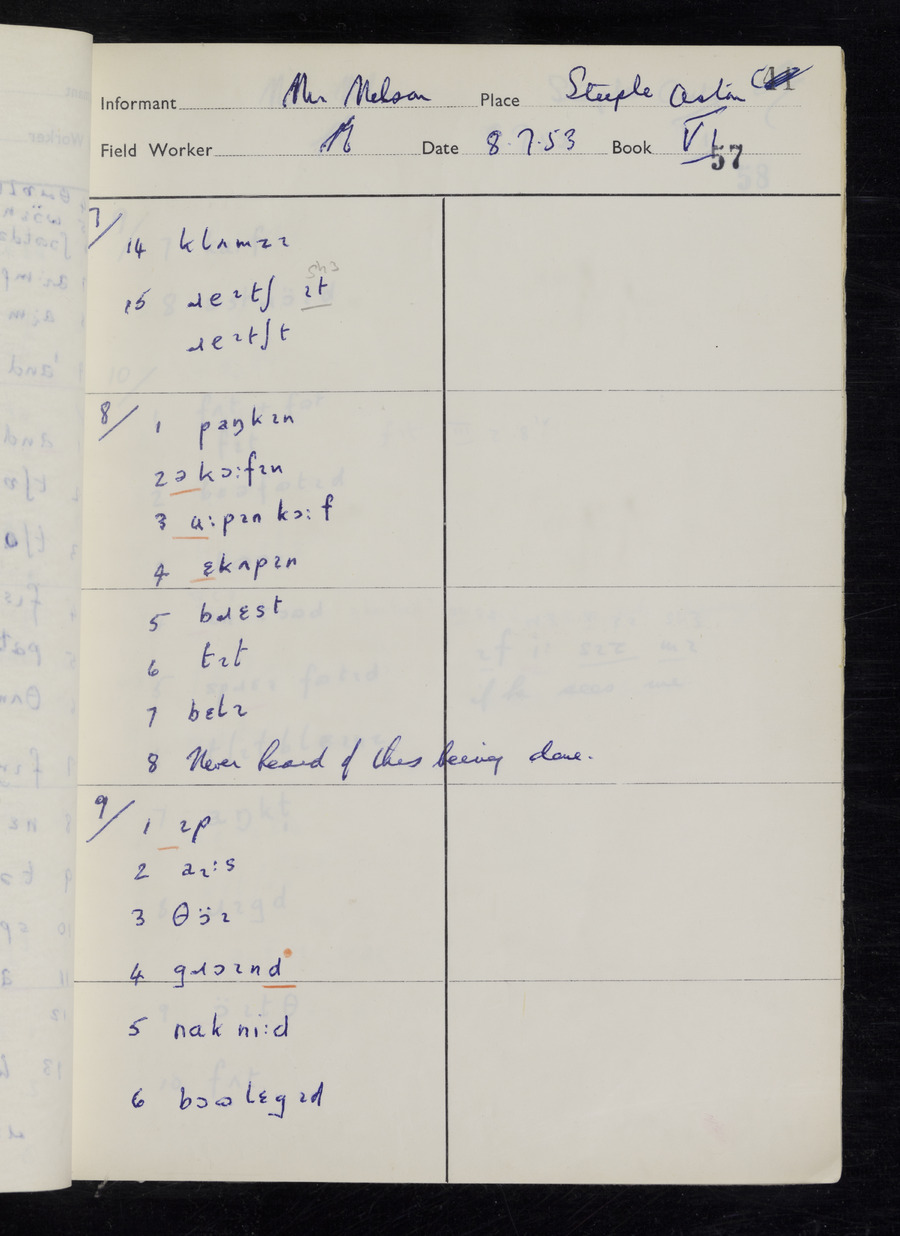 Informant Mr Nelson Place Steeple Aston
Field Worker Date 8.7.53 Book VI
57
7/
14 klʌmzɪ
15 ɹeɪtʃ ɪt
ɹeɪtʃt
8/
1 paŋkɪn
2 ə kɔ:fɪn
3 ɑ:pɪn kɔ:f
4 ɛkʌpɪn
5 bɹɛst
6 tɪt
7 bɛlɪ
8 Never heard of this being done.
9/
1 ɪp
2 aɪ:s
3 θɔ̈ɪ
4 gɹɔɪnd
5 nak ni:d
6 bɔɷlɛgɪd